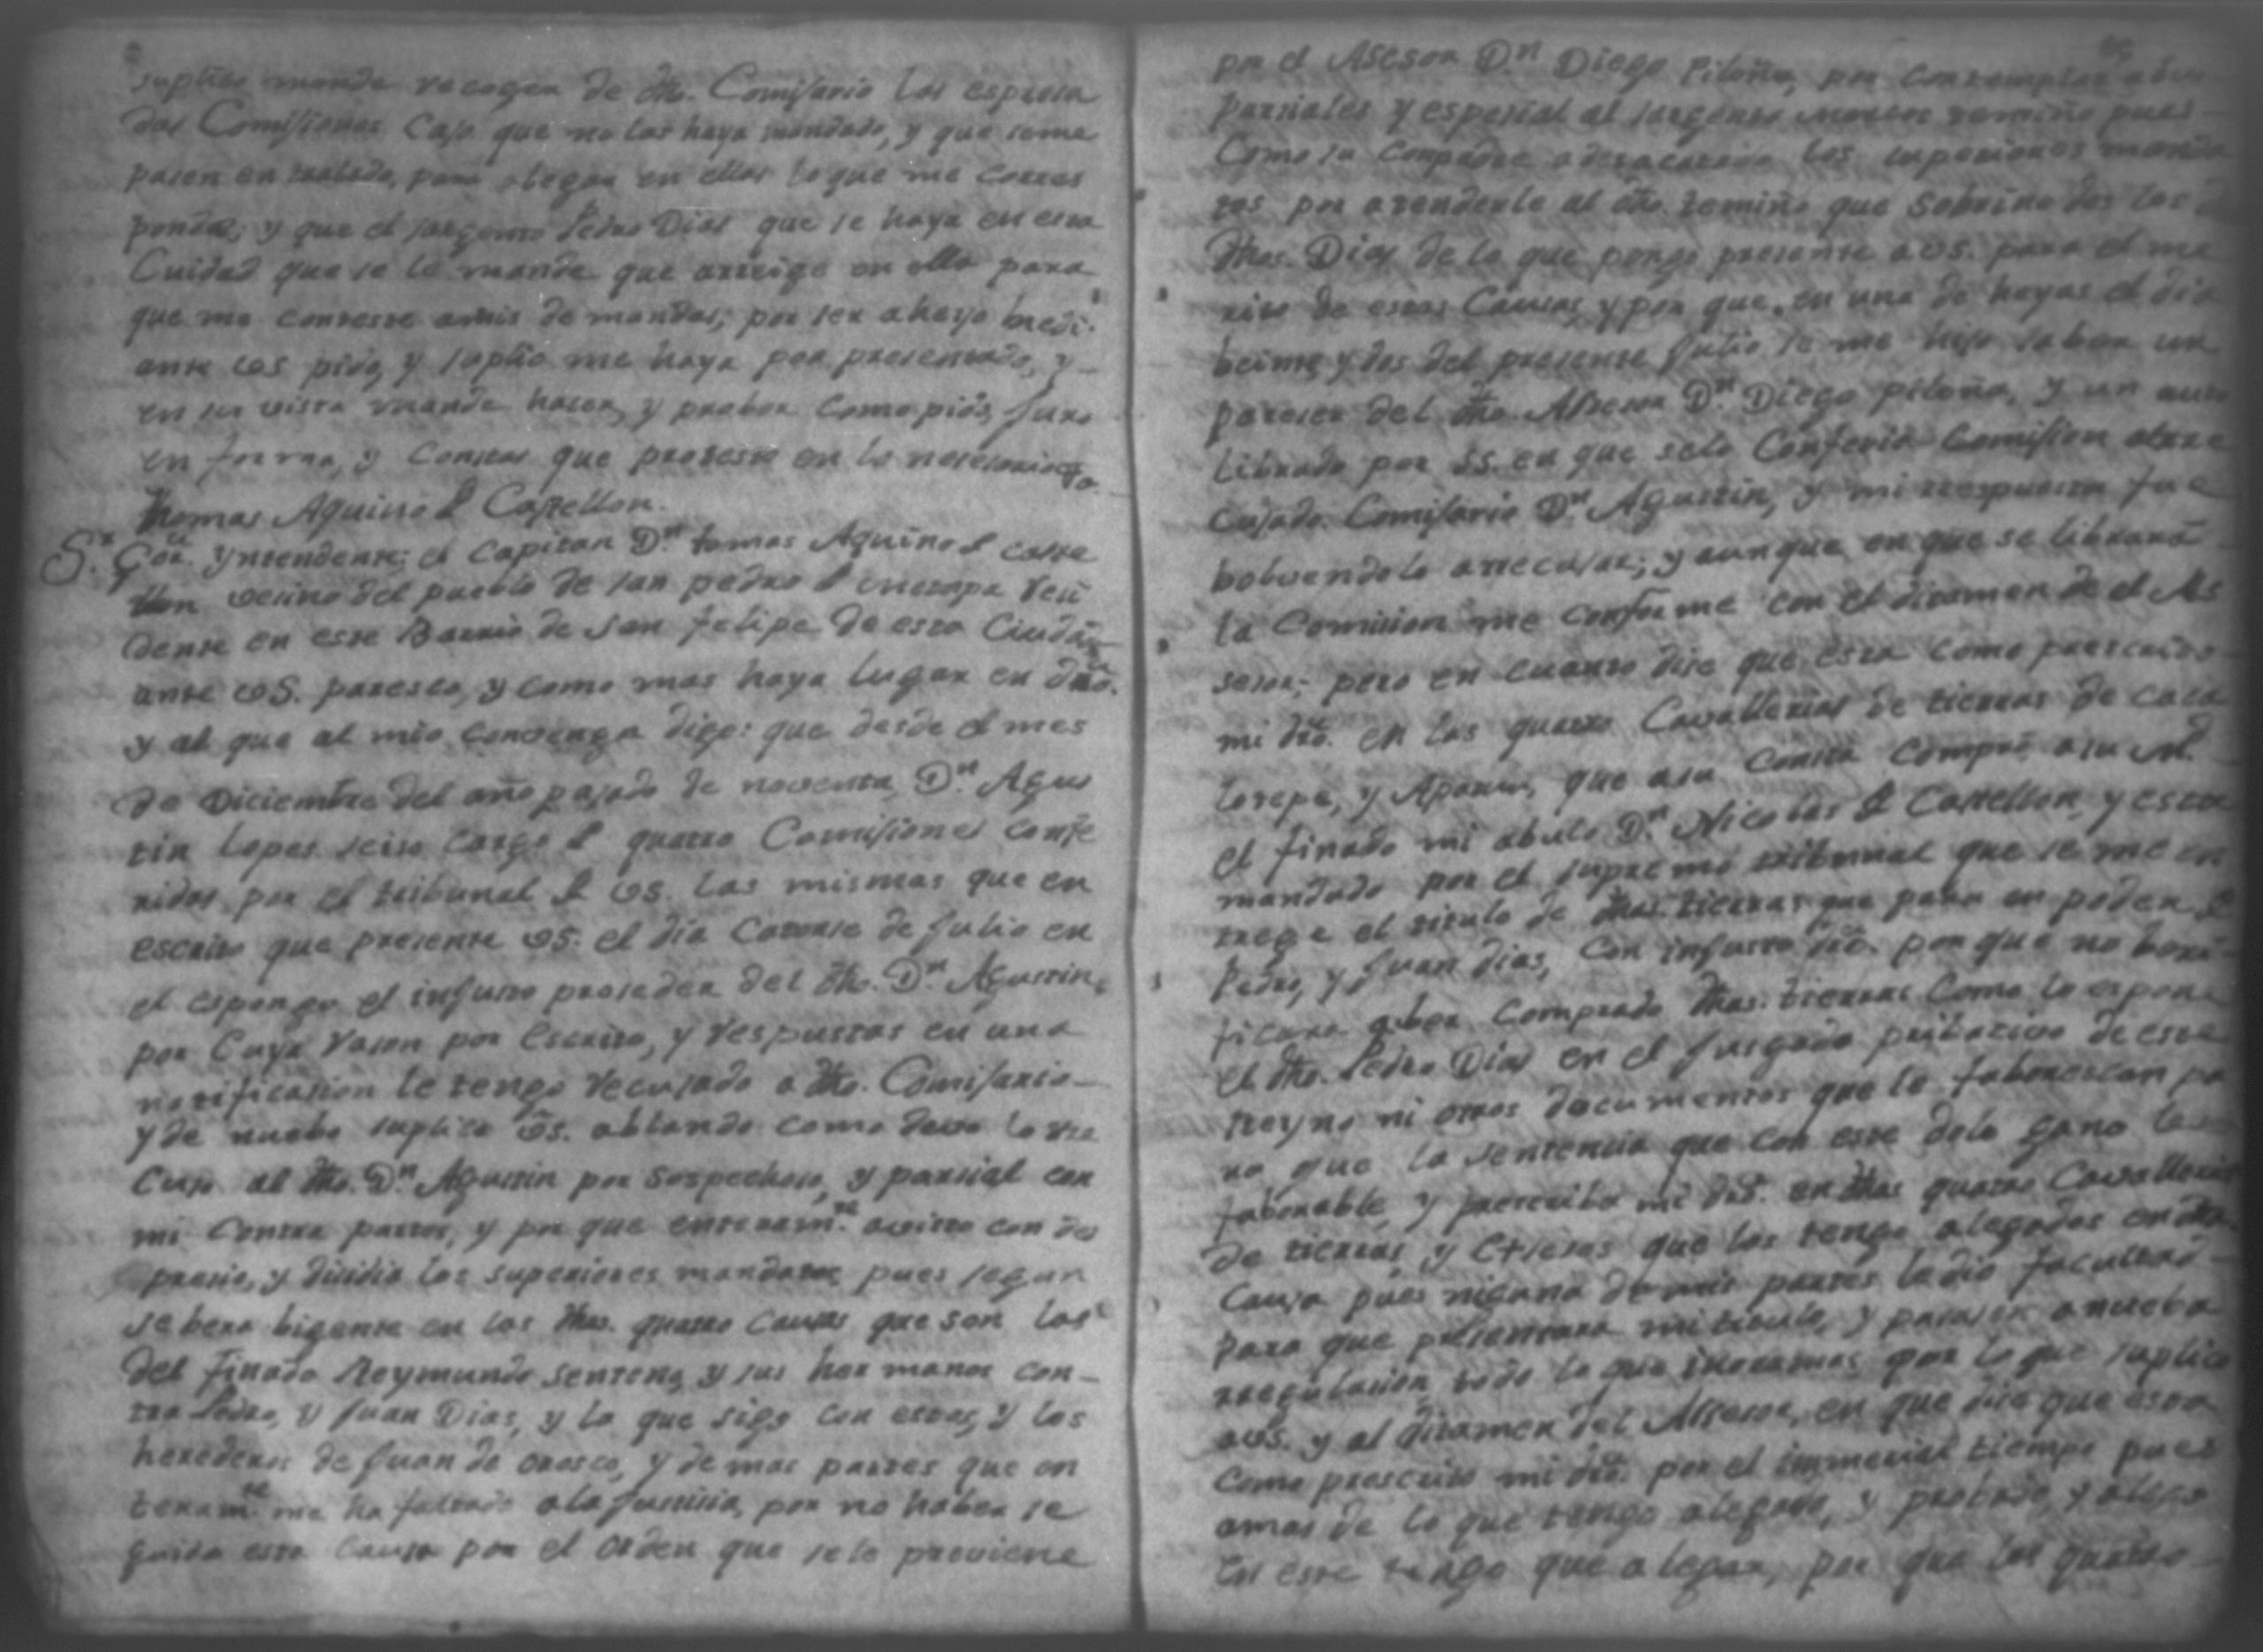 suplico mande recoger de dho. Comisario las espresa
das Comisiones Caso que no las haya mandado, y que seme
pasen en traslado, para alegar en ellas lo que me corres
ponde; y que el sargento Pedro Dias que se haya en esta
Cuidad que se le mande que arreige en ella para
que me conteste amis demandas; por ser a heyo medi
ante vs pido, y suplico me haya por presentado, y
en su vista mande hacer, y prober como pido, juro
en forma, y Costas que protesto en lo nesesario
Thomas Aquino d Castellon.
Sr. Gor. Yntendente: el Capitan Dn. tomas Aquino d Caste
llon vecino del pueblo de san pedro d metapa resi
dente en este Barrio de san felipe de esta Ciudad
ante vs. paresco, y como mas haya lugar en dro.
y al que al mio convenga digo: que desde el mes
de Diciembre del año pasado de noventa, Dn. Agus
tin Lopes seiso cargo d quatro Comisiones confe
ridas por el tribunal d vs. las mismas que en
escrito que presente vs. el dia Catorse de Julio en
el espongo el injusto proseder del dho. Dn. Agustin,
por Cuya rason por Escrito, y respustas en una
notificasion le tengo recusado a dho. Comisario
y de nuebo suplico vs. ablando como devo lo rre
cuso al dho. Dn. Agustin por sospechoso, y parsial con
mi Contra partes, y por que enteramte. avisto con des
presio, y dividio los superiores mandatos pues segun
se bera bigente en las dhas. quatro causas que son las
del finado Reymundo Senteno, y sus hermanos con-
tra Pedro, y Juan Dias, y la que sigo con estos, y los
herederos de Juan de Orosco, y demas partes que en
teramte. me ha faltado a la Justicia, por no haber se
guido esta Causa por el orden que sele previene
por el Asesor Dn. Diego Piloña, por Contemplar a sus
parsiales y espesial al sargento
Como su Compadre a desacatado los superiores manda
tos por atenderle al dho. temiño que sobrino dos los
dhos. Dias de lo que pongo presente a vs. para el me
rito de estas Causas, y por que en una de hoyas el dia
beinte y dos del presente Julio se me hiso saber un
pareser del dho. Asesor Dn. Diego piloña, y un auto
librado por ss. en que sele Conferia Comision al rre
cusado Comisario Dn. Agustin, y mi rrespuesta fue
bolviendolo arrecusar; y aunque en que se librara
la Comision me conforme con el dictamen de el As
sesor; pero en cuanto dise que esta como prescrito
mi dro. en las quatro Cavallerias de tierras de caca
lotepe, y Apante, que a su Costa Compro a su Md
el finado mi abulo Dn. Nicolas d Castellon, y esta
mandado por el supremo tribunal que se me en
tregue el titulo de dhas. tierras que para en poder d
Pedro, y Juan dias, con injusto dro. por que no beri
ficara aber Comprado dhas. tierras Como lo espon
el dho. Pedro Dias en el Jusgado pribatibo de este
Reyno ni otros documentos que le faborescan pa
ra que la sentencia que con este dolo gano le
faborable, y prescriba mi dro. en dhas quatro Cavallerias
de tierras y que los tengo alegados en dha.
Causa pues ninguna de mis partes le dio facultad
para que presentara mi titulo, y pasase a nueba
rregulasion todo lo que por lo que suplico
a vs. y al dictamen del Assesor, en que dise que esta
como prescrito mi dro. por el immemial tiempo pues
amas de lo que tengo alegado, y probado, y alego
en este tengo que alegar, por que las quatro